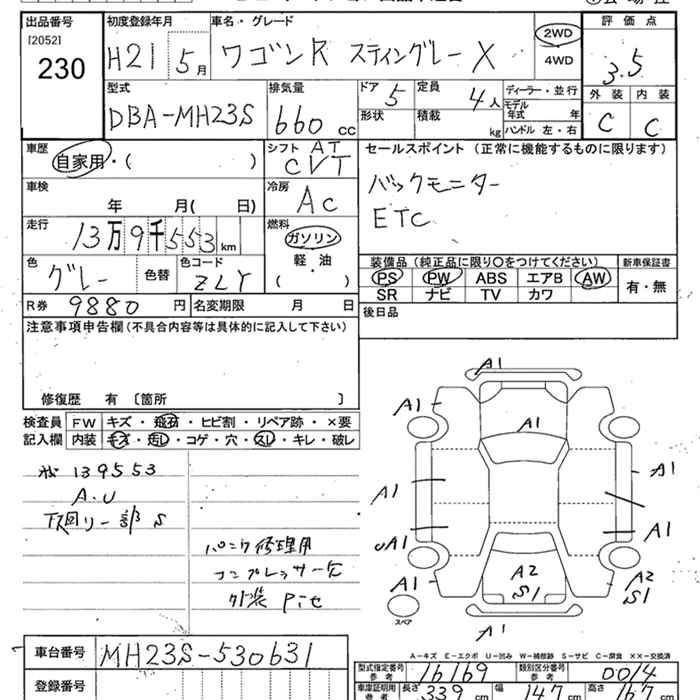 出品番号
[2052]
230
初度登録年月
H21 5月
車名・グレード
ワゴンR スティングレー X
2WD
4WD
評価点
3.5
外装 内装
C C
型式
DBA-MH23S
排気量
660 cc
ドア 5
形状
定員 4人
積載 kg
ディーラー・並行
モデル年式 年
ハンドル 左・右
車歴
自家用・( )
シフト AT
CVT
セールスポイント (正常に機能するものに限ります)
バックモニター
ETC
車検
年 月( 日)
冷房
AC
走行
13万9千553km
燃料
ガソリン
軽・油
( )
色
グレー
色替
色コード
ZLY
装備品 (純正品に限り〇をつけてください)
PS PW ABS エアB AW
SR ナビ TV カワ
新車保証書
有・無
R券 9880円
名変期限 月 日
後日品
注意事項申告欄(不具合内容等は具体的に記入して下さい)
修復歴 有 〔箇所 〕
検査員記入欄
FW キズ・飛石・ヒビ割・リペア跡・×要
内装 キズ・汚し・コゲ・穴・スレ・キレ・破レ
139553
A.U
下回り一部S
修理用
コンプレッサー欠
外装
A1
A1
A1
A1
A1
A1
A1
UA1
A1
A1
A2
S1
A2
S1
A1
スペア
車台番号 MH23S-530631
登録番号
A-キズ E-エクボ U-凹み W-補修跡 S-サビ C-腐食 ××-交換済
型式指定番号 参考 16169
類別区分番号 参考 0014
車庫証明用 参考 長さ 339 cm 幅 147 cm 高さ 167 cm